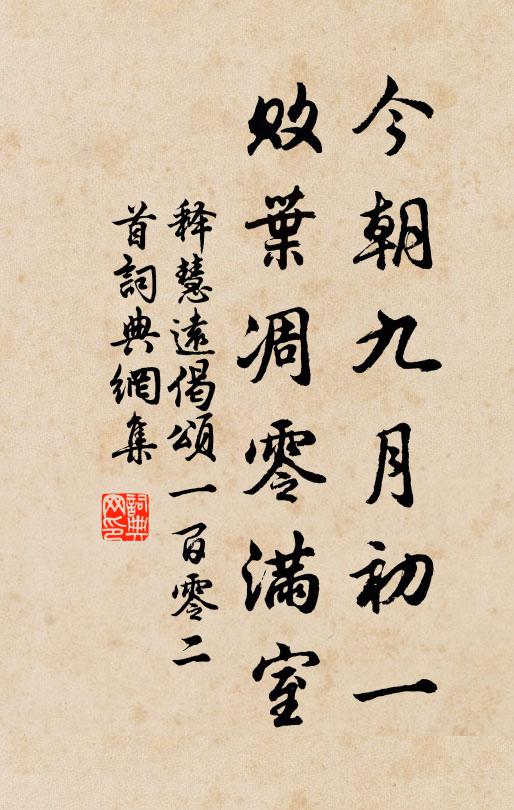 今朝九月初一
败葉凋零満室
释慧遠偈頌一百零二
首詞典網集
詞典网印